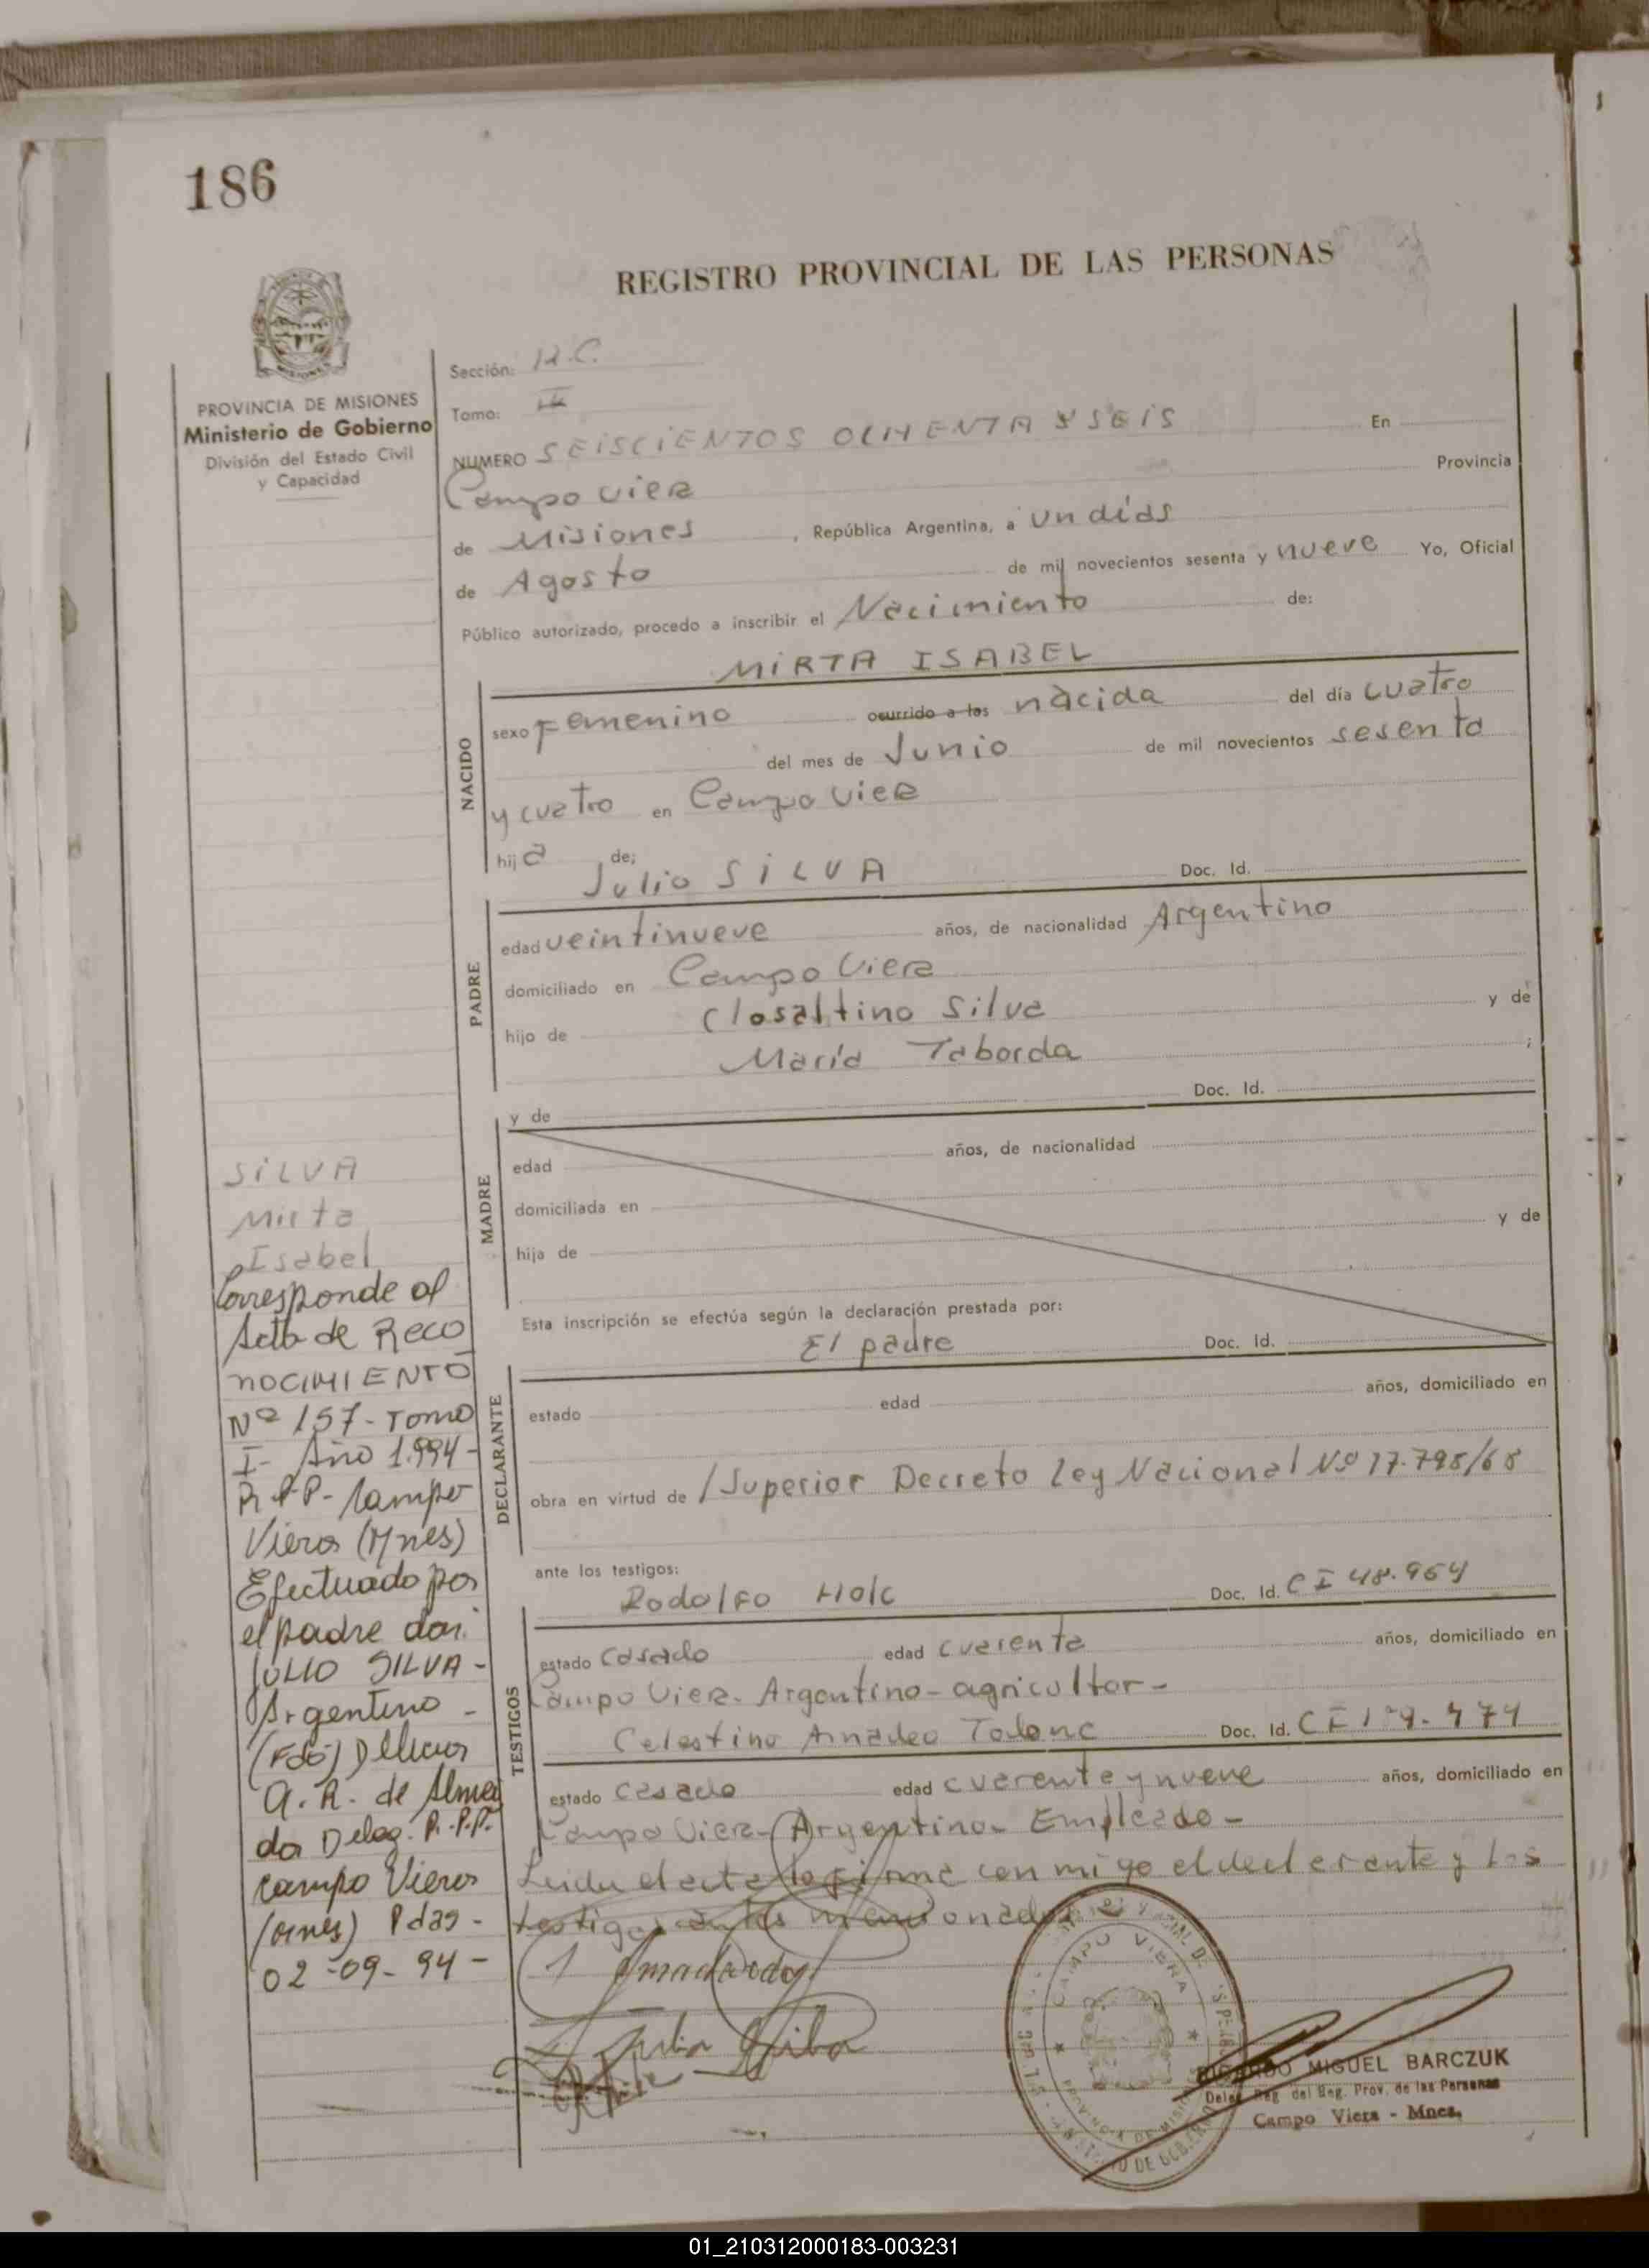 186
REGISTRO PROVINCIAL DE LAS PERSONAS
PROVINCIA DE MISIONES
Ministerio de Gobierno
División del Estado Civil
y Capacidad
Sección:
Tomo:
NUMERO SEISCIENTOS OCHENTA Y SEIS En
Campo Viera Provincia
de Misiones, República Argentina, a un días
de Agosto de mil novecientos sesenta y nueve Yo, Oficial
Público autorizado, procedo a inscribir el Nacimiento de:
MIRTA ISABEL
NACIDO
sexo Femenino ocurrido a las nacida del día cuatro
del mes de Junio de mil novecientos sesenta
y cuatro en Campo Viera
hija de;
Julio SILVA Doc. Id.
PADRE
edad veintinueve años, de nacionalidad Argentino
domiciliado en Campo Viera
hijo de Closaltino Silva y de
María Taborda ;
y de Doc. Id.
MADRE
edad años, de nacionalidad
domiciliada en
hija de y de
Esta inscripción se efectúa según la declaración prestada por:
El padre Doc. Id.
DECLARANTE
estado edad años, domiciliado en
obra en virtud de /Superior Decreto Ley Nacional Nº 17.798/68
ante los testigos:
Rodolfo Holc Doc. Id. CI 48.964
TESTIGOS
estado Casado edad cuarenta años, domiciliado en
Campo Viera. Argentino-agricultor-
Celestino Amadeo Doc. Id. CI
estado casado edad cuarenta y nueve años, domiciliado en
Campo Viera-Argentino- Empleado-
Leida el acta la firma con migo el declarante y los
testigos antes mencionados
Julio Silva
SILVA
Mirta
Isabel
Corresponde al
Acta de Reco
NOCIMIENTO
Nº 157-Tomo
I- Año 1.994-
R.P.P- Campo
Viera (Mnes)
Efectuado por
el padre don:
JULIO SILVA-
Argentino-
(Fdo)
A. R. de Almei
da Deleg. R.P.P.
Campo Viera
(Mnes) Pdas-
02-09-94-
CAMPO VIERA
PROVINCIA DE MISIONES
RICARDO MIGUEL BARCZUK
Deleg. Reg. del Reg. Prov. de las Personas
Campo Viera - Mnes.
01_210312000183-003231